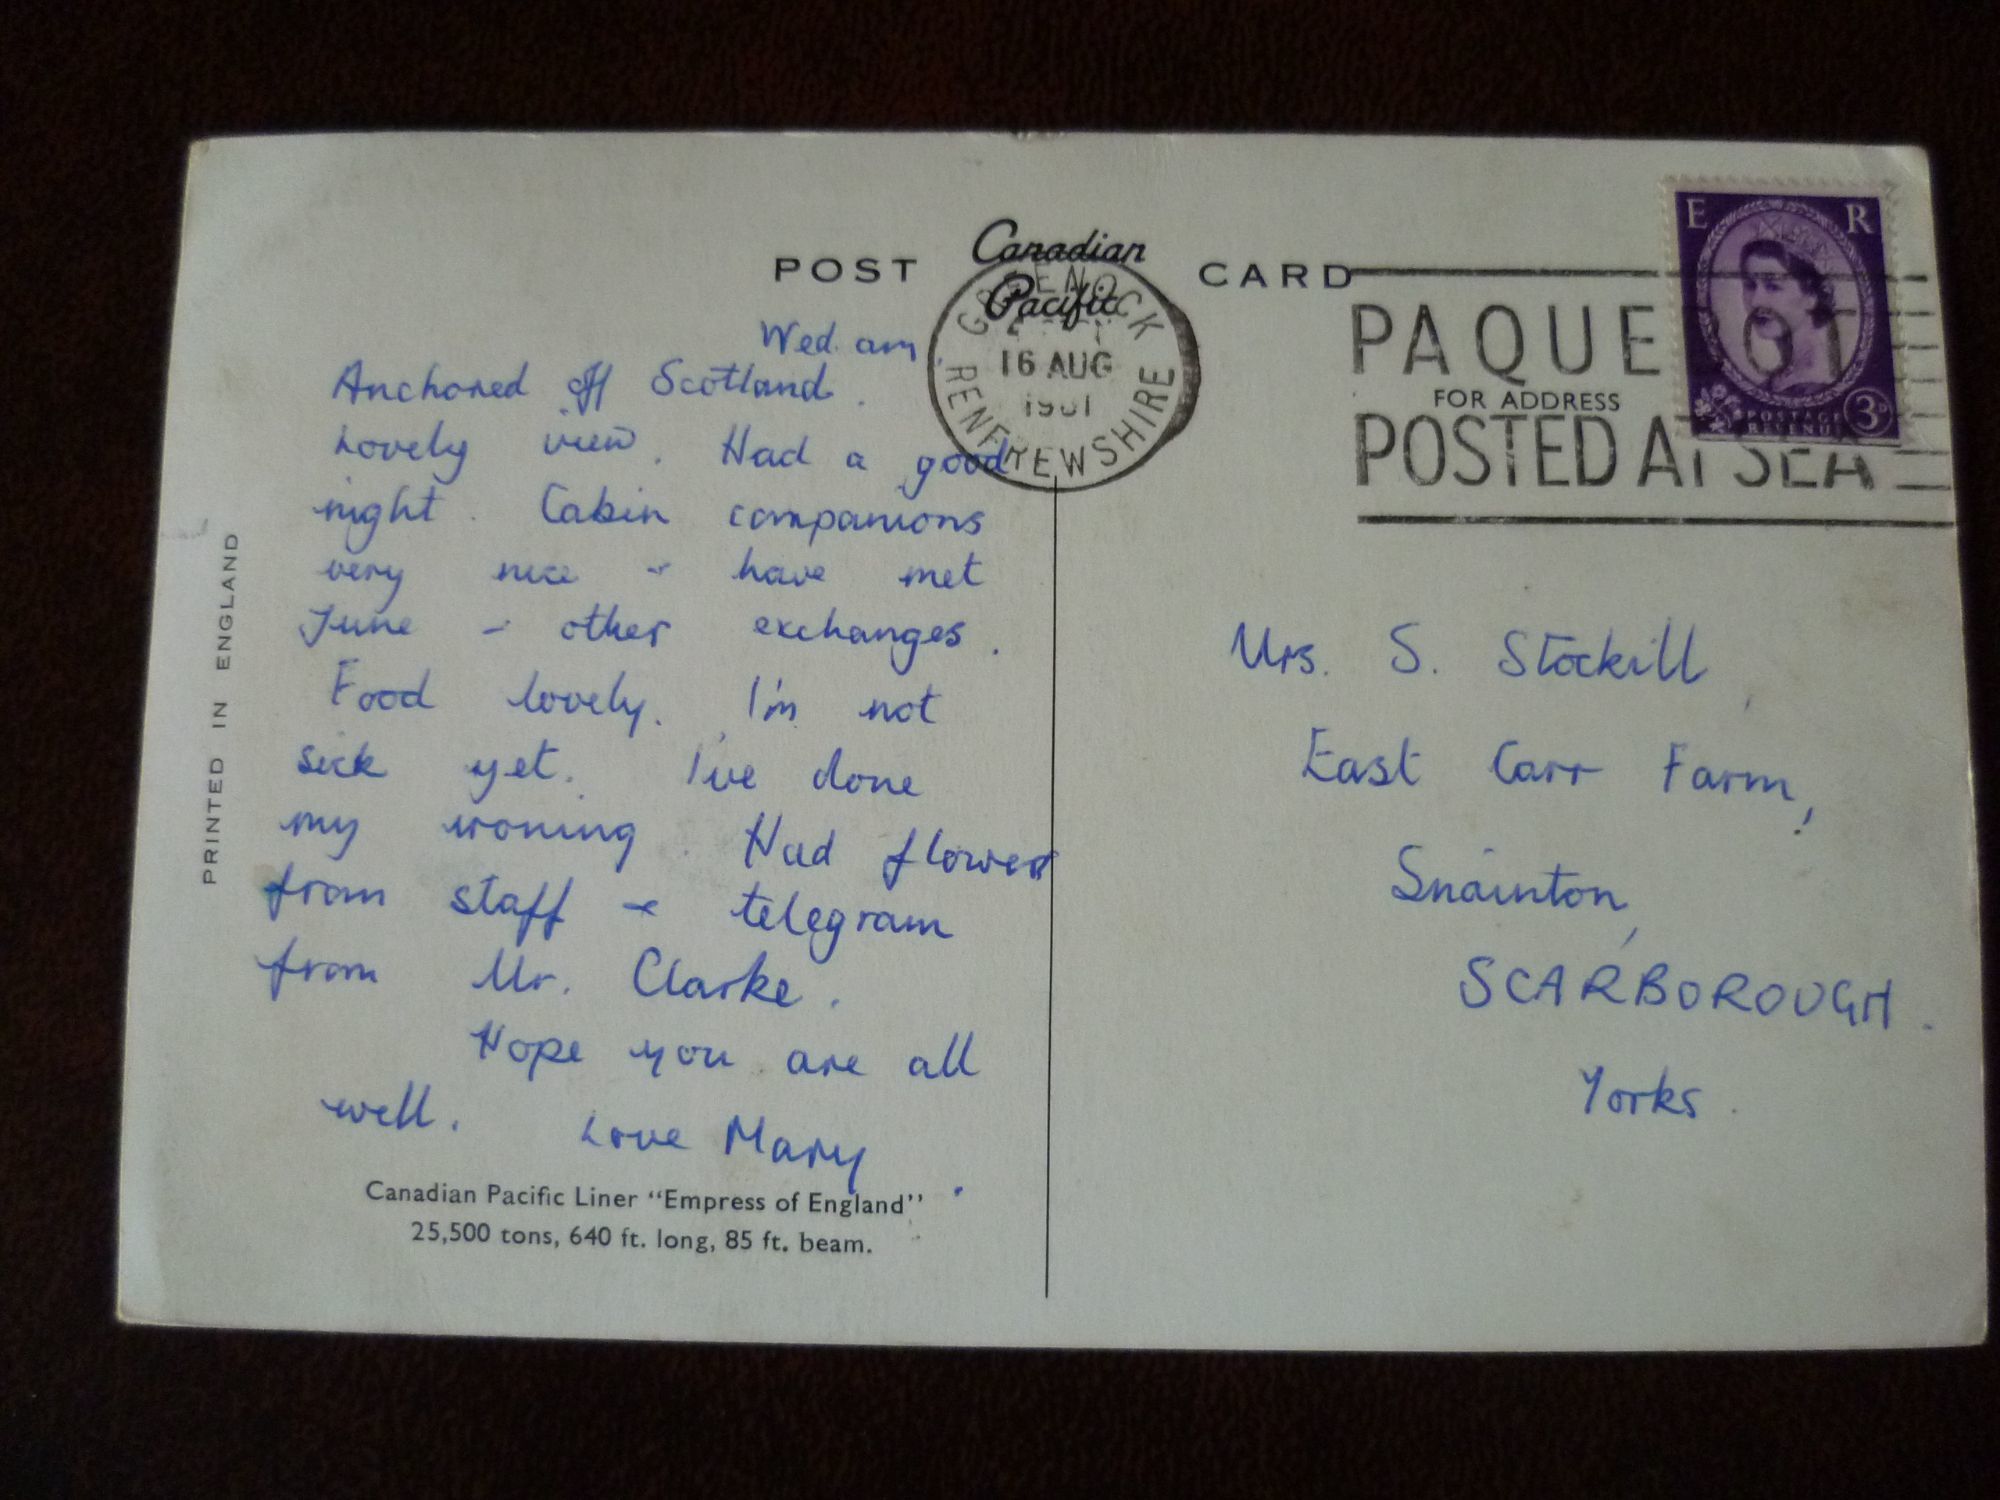 POST Canadian Pacific CARD
GREENOCK
16 AUG
1961
RENFREWSHIRE
PAQUEBOT
FOR ADDRESS
POSTED AT SEA
E R
POSTAGE
REVENUE
3D
Wed. am.
Anchored off Scotland.
Lovely view. Had a good
night. Cabin companions
very nice & have met
June & other exchanges.
Food lovely. I'm not
sick yet. I've done
my ironing. Had flowers
from staff & telegram
from Mr. Clarke.
Hope you are all
well. Love Mary.
Canadian Pacific Liner "Empress of England"
25,500 tons, 640 ft. long, 85 ft. beam.
PRINTED IN ENGLAND
Mrs. S. Stockill,
East Carr Farm,
Snainton,
SCARBOROUGH.
Yorks.